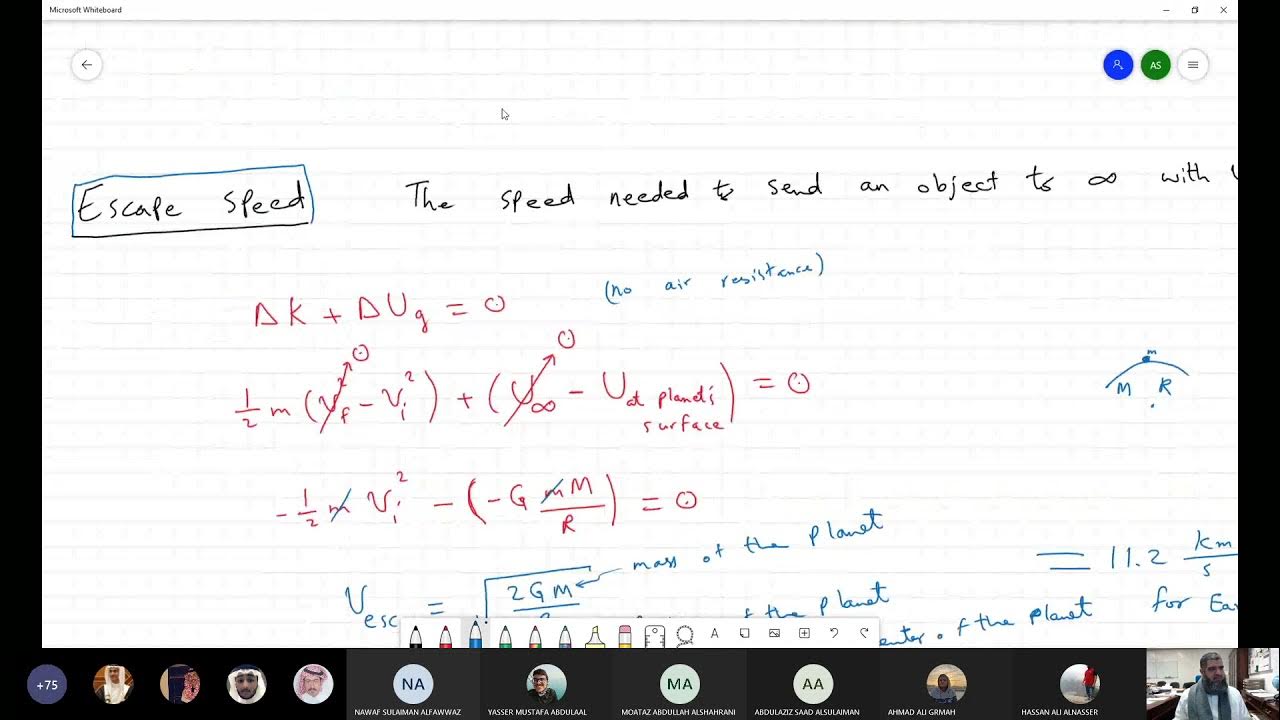 Microsoft Whiteboard
AS
Escape speed
The speed needed to send an object to ∞ with
(no air resistance)
ΔK + ΔU_g = 0
½ m (v_f² - v_i²) + (U_∞ - U_at planet's surface) = 0
0
0
m
M R
-½ m v_i² - (-G mM/R) = 0
V_esc = √(2GM/
mass of the planet
= 11.2 km/s
f the planet
for Ear
enter of the planet
A
+75
NA
MA
AA
NAWAF SULAIMAN ALFAWWAZ
YASSER MUSTAFA ABDULAAL
MOATAZ ABDULLAH ALSHAHRANI
ABDULAZIZ SAAD ALSULAIMAN
AHMAD ALI GRMAH
HASSAN ALI ALNASSER